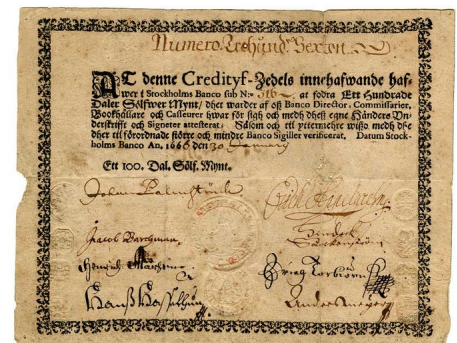 Numero Trehund. Sexton.
AT denne Credityf-Zedels innehafwande haf-
wer i Stockholms Banco sub N:o 316 at fodra Ett Hundrade
Daler Sölfwer Mynt/ dhet warder af oß Banco Director, Commissarier,
Bookhållare och Casseurer hwar för sigh och medh dheß egne Händers Un-
derskrifft och Signeter attesterat. Såsom och til yttermehre wißo medh dhe
dher til förordnade större och mindre Banco Sigiller verificerat. Datum Stock-
holms Banco An. 1666 den 30 January
Ett 100. Dal. Sölf. Mynt.
Johan Palmstruch
Jacob Barchman
Hendrich
Anders